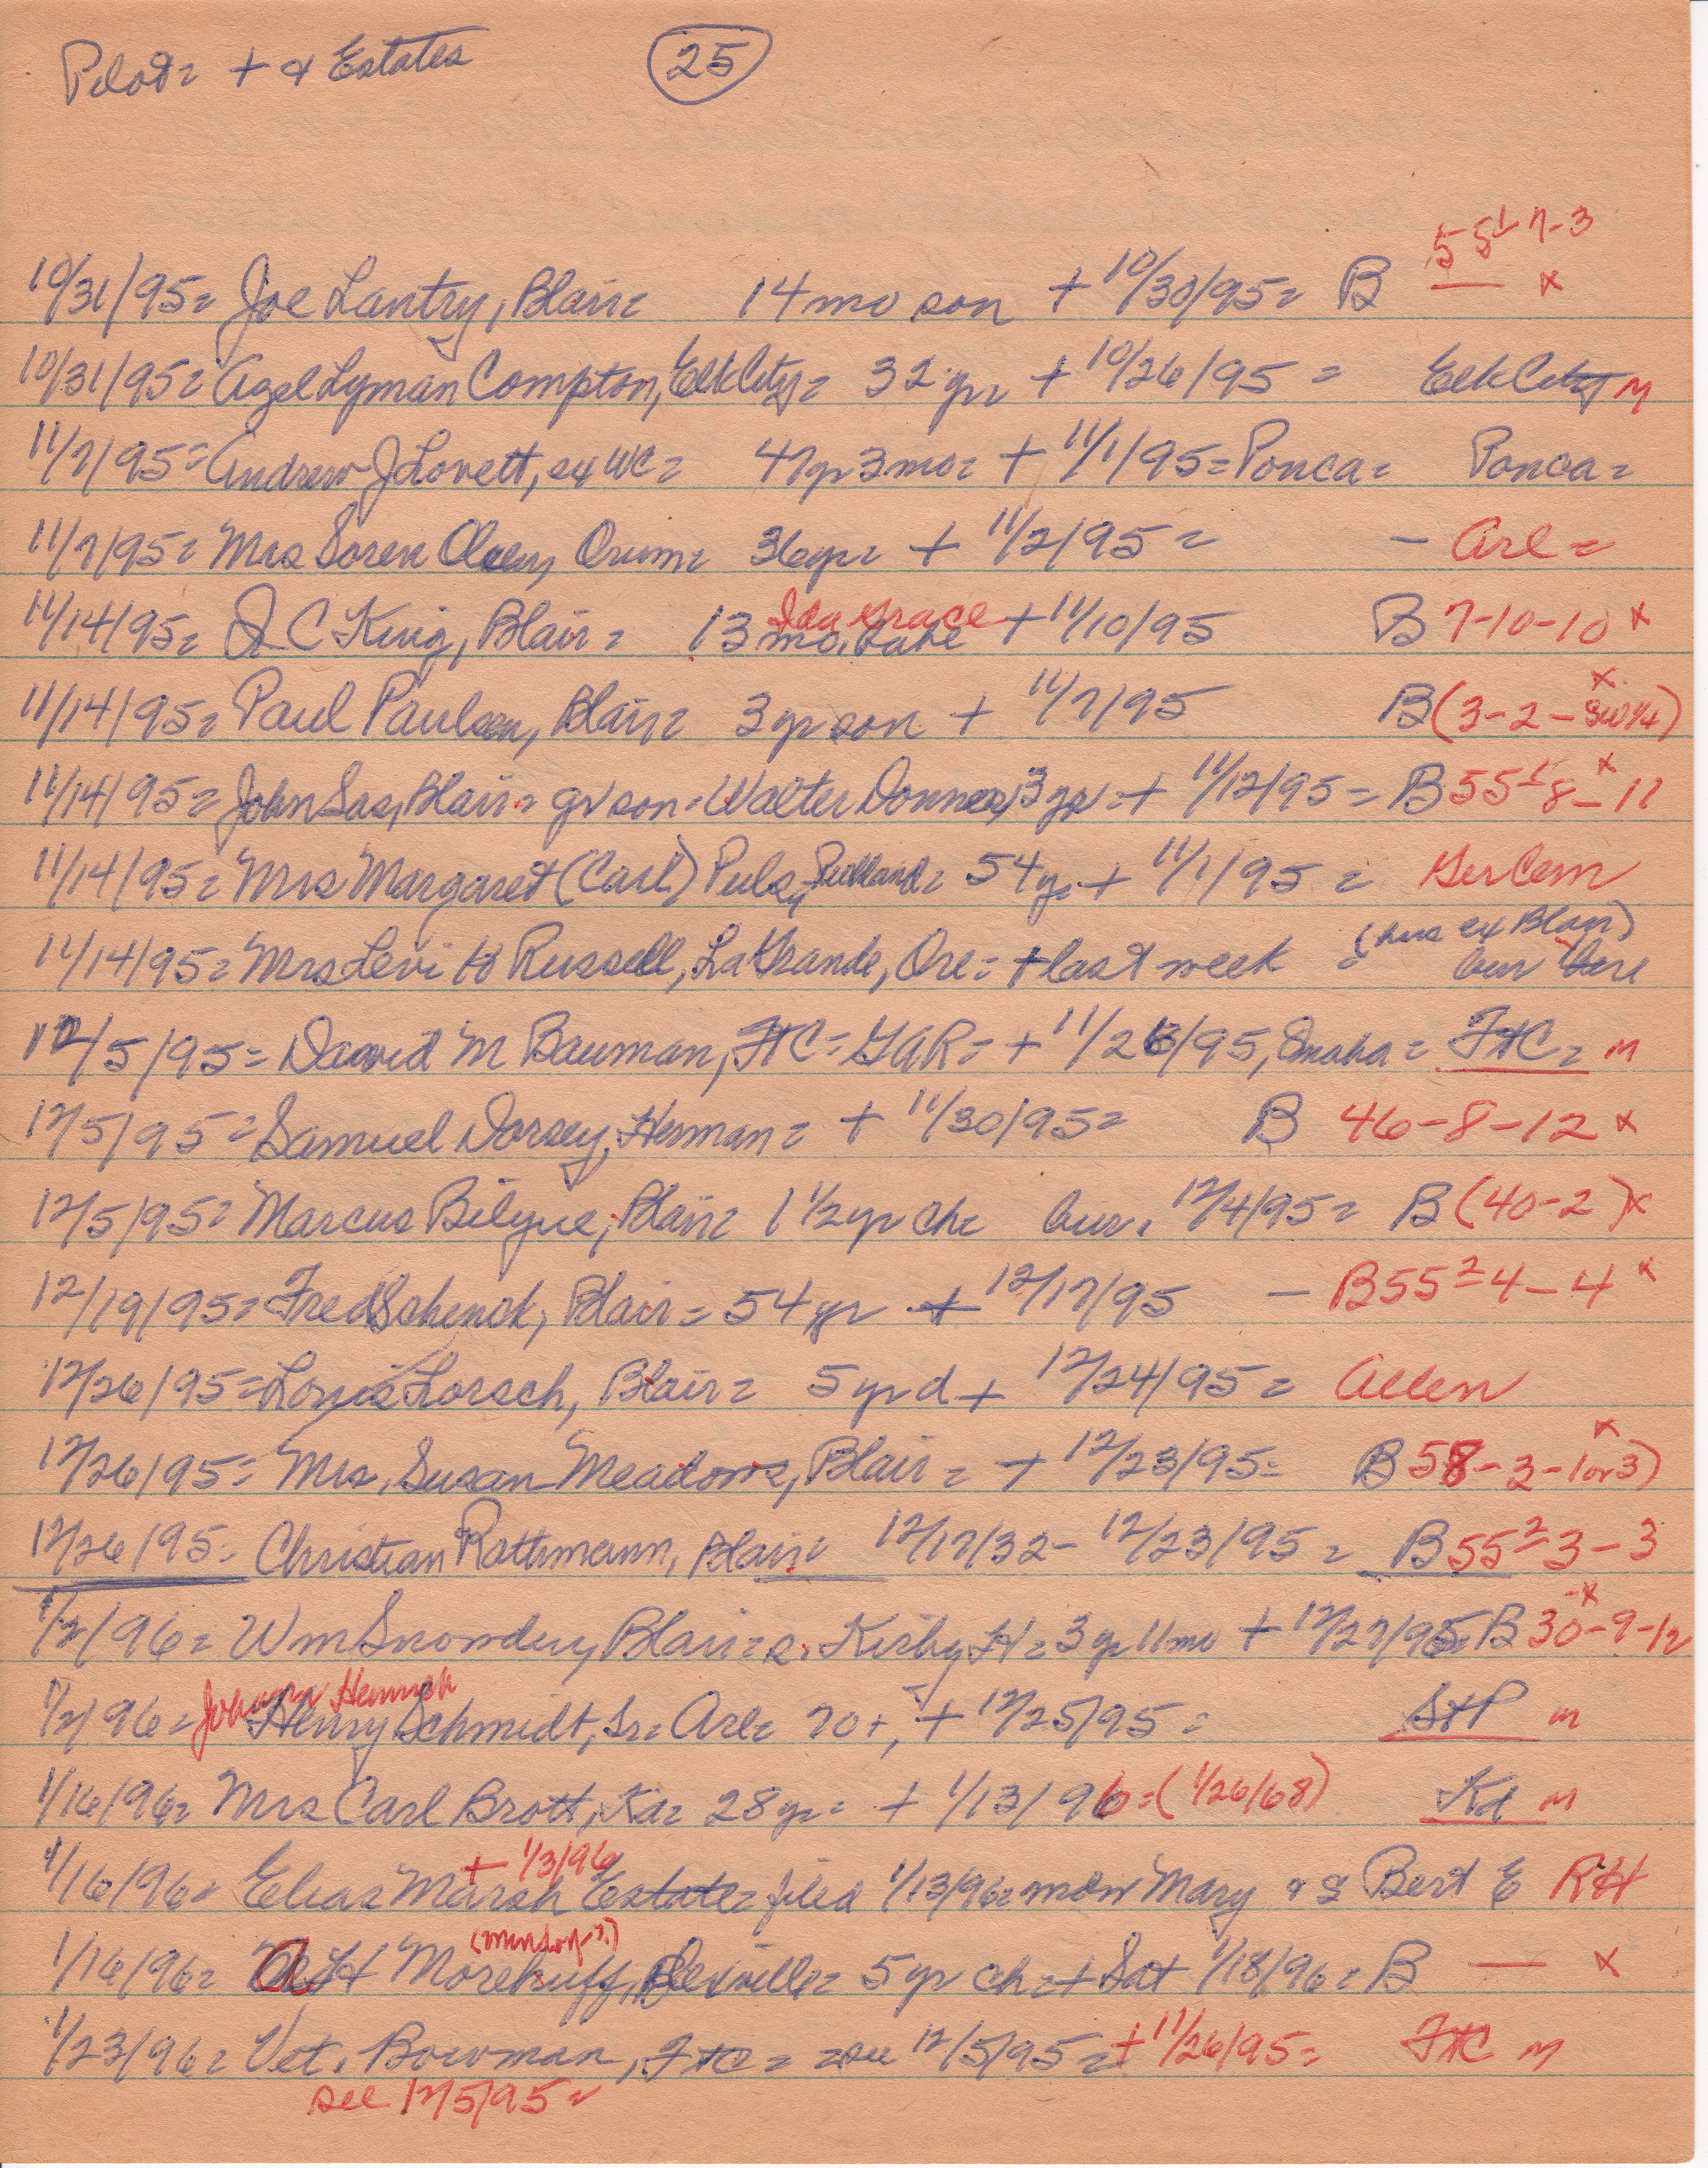 Pilot= + & Estates (25)
55¹ 7-3
10/31/95= Joe Lantry, Blair= 14 mo son + 10/30/95= B — x
10/31/95= Azel Lyman Compton, Elk City= 32 yr= + 10/26/95 = Elk City M
11/7/95= Andrew J Lovett, ex WC= 47 yr 3 mo= + 11/1/95= Ponca= Ponca=
11/7/95= Mrs Soren Olsen, Orum= 36 yr= + 11/2/95 = - Arl =
Ida Grace
11/14/95= J C King, Blair= 13 mo. babe + 11/10/95 B 7-10-10 x
x
11/14/95= Paul Paulsen, Blair= 3 yr son + 11/7/95 B (3-2-SW 1/4)
x
11/14/95= John Sas, Blair= gr son= Walter Donner, 3 yr= + 11/12/95 = B 55¹ 8-11
11/14/95= Mrs Margaret (Carl) Puls, = 54 yr + 11/1/95 = Ger Cem
(hus ex Blair)
11/14/95= Mrs Levi Russell, La Grande, Ore= + last week = bur here
12/5/95= David M Bauman, FtC= GAR= + 11/26/95, Omaha = FtC= m
12/5/95= Samuel Dorsey, Herman= + 11/30/95= B 46-8-12 x
12/5/95= Marcus Bilyue, Blair= 1 1/2 yr ch= bur. 12/4/95= B (40-2) x
12/19/95= Fred Schenck, Blair= 54 yr + 12/17/95 - B 55² 4-4 x
12/26/95= Louis Lorsch, Blair= 5 yr d + 12/24/95 = Allen
x
12/26/95= Mrs. Susan Meadows, Blair = + 12/23/95= B 58-3-1 or 3)
12/26/95= Christian Rathmann, Blair= 12/17/32- 12/23/95 = B 55² 3-3
-x
1/2/96= Wm Snowden, Blair= s. Kirby H= 3 yr 11 mo + 12/27/95= B 30-9-12
Johann Heinrich
1/2/96= Henry Schmidt, Sr= Arl= 70+, + 12/25/95= StP m
1/16/96= Mrs Carl Brott, Kd= 28 yr= + 1/13/96=(1/26/68) Kd m
+ 1/3/96
1/16/96= Elias Marsh Estate= filed 1/13/96= wdw Mary & S Bert E RH
1/16/96= Morehuff, 5 yr ch= + Sat 1/18/96= B — x
1/23/96= Vet. Bowman, FtC= see 12/5/95= + 11/26/95= FtC m
see 12/5/95=